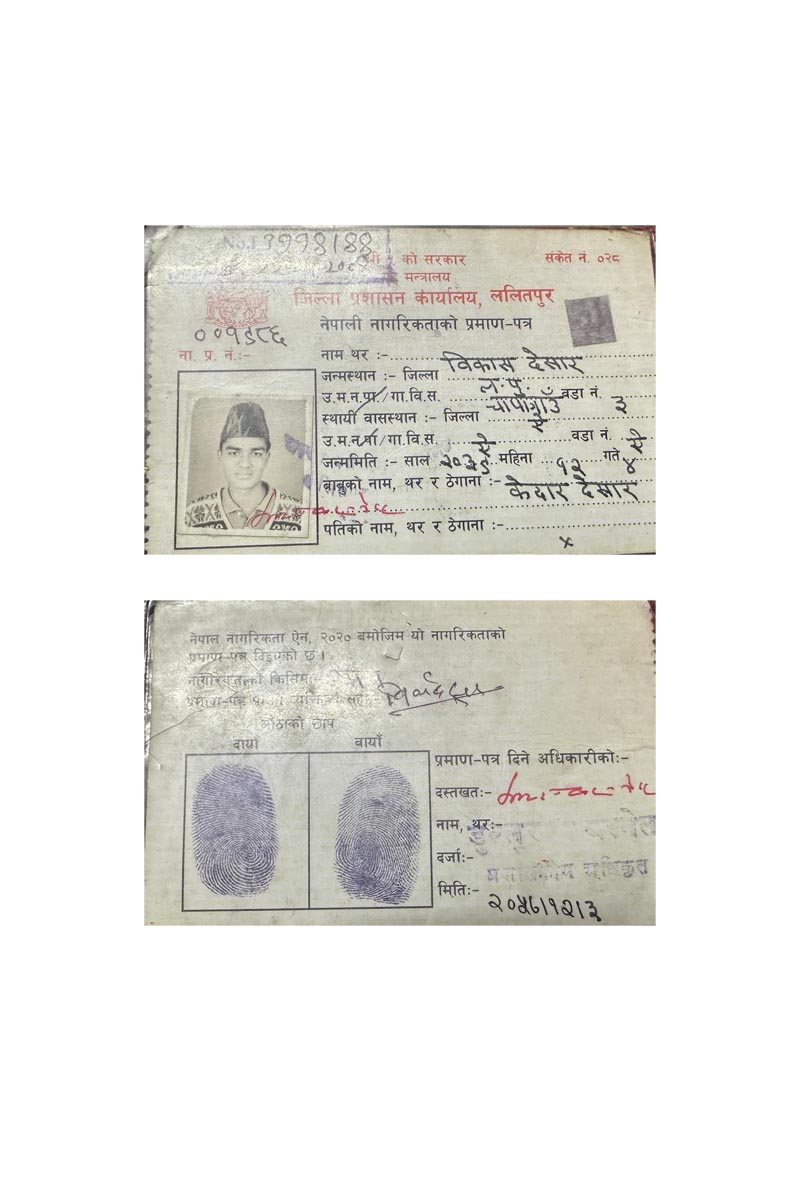 No.
श्री ५ को सरकार
संकेत नं. ०२८
मन्त्रालय
जिल्ला प्रशासन कार्यालय, ललितपुर
नेपाली नागरिकताको प्रमाण-पत्र
ना. प्र. नं.:-
नाम थर :- विकास देसार
जन्मस्थान :- जिल्ला ल.पु.
उ.म.न.पा./गा.वि.स. चापागाउँ वडा नं. ३
स्थायी वासस्थान :- जिल्ला ऐ
उ.म.न.पा/गा.वि.स. ऐ वडा नं. ऐ
जन्ममिति :- साल महिना १२ गते ४
बाबुको नाम, थर र ठेगाना :- केदार देसार
पतिको नाम, थर र ठेगाना :- x
नेपाल नागरिकता ऐन, २०२० बमोजिम यो नागरिकताको
प्रमाण-पत्र दिइएको छ ।
नागरिकताको किसिम
प्रमाण-पत्र
औंठाको छाप
दायाँ
बायाँ
प्रमाण-पत्र दिने अधिकारीको:-
दस्तखत:-
नाम, थर:-
दर्जा:-
मिति:- २०५६/१२/३